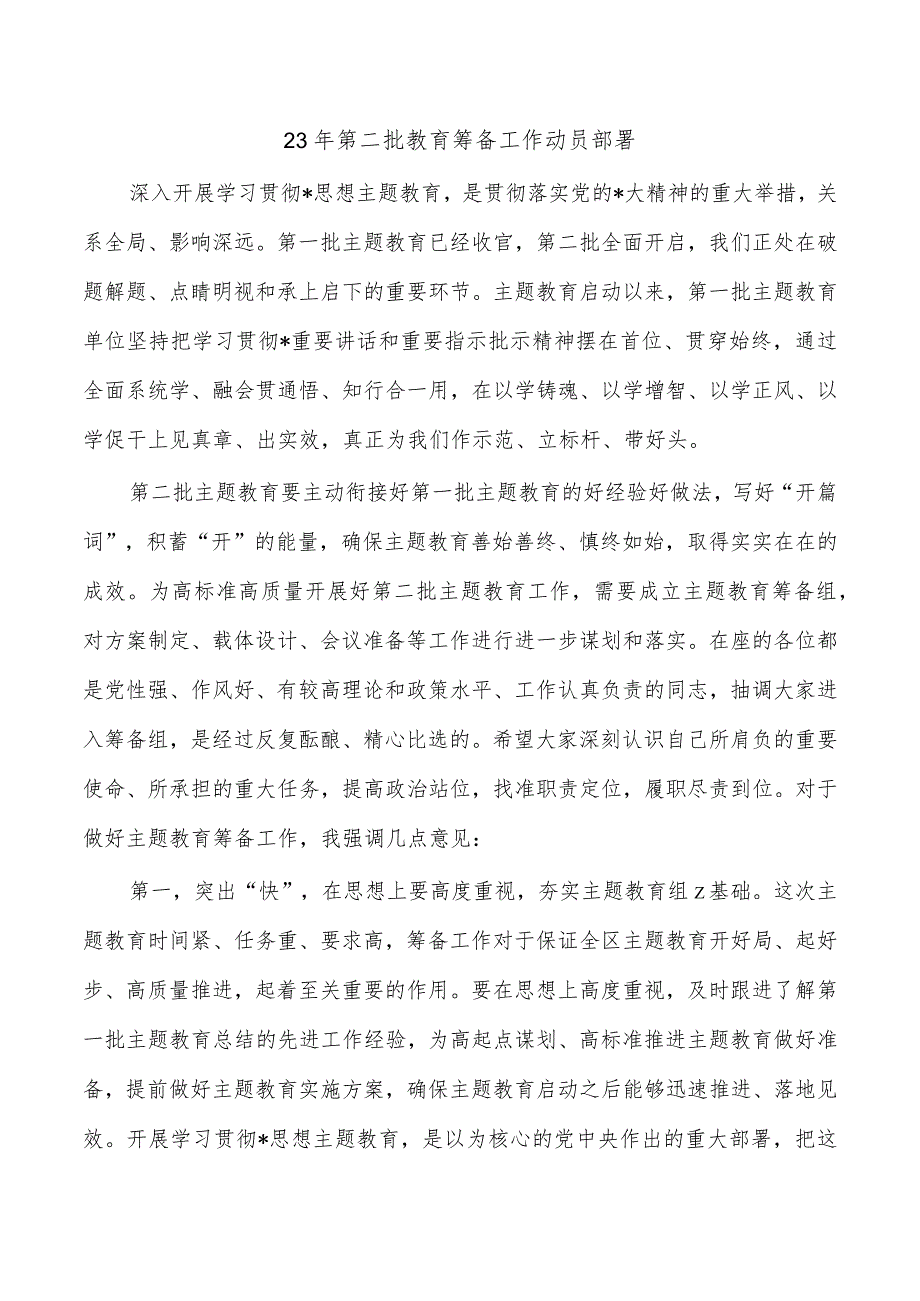 23 年第二批教育筹备工作动员部署
深入开展学习贯彻*思想主题教育，是贯彻落实党的*大精神的重大举措，关
系全局、影响深远。第一批主题教育已经收官，第二批全面开启，我们正处在破
题解题、点睛明视和承上启下的重要环节。主题教育启动以来，第一批主题教育
单位坚持把学习贯彻*重要讲话和重要指示批示精神摆在首位、贯穿始终，通过
全面系统学、融会贯通悟、知行合一用，在以学铸魂、以学增智、以学正风、以
学促干上见真章、出实效，真正为我们作示范、立标杆、带好头。
第二批主题教育要主动衔接好第一批主题教育的好经验好做法，写好“开篇
词”，积蓄“开”的能量，确保主题教育善始善终、慎终如始，取得实实在在的
成效。为高标准高质量开展好第二批主题教育工作，需要成立主题教育筹备组，
对方案制定、载体设计、会议准备等工作进行进一步谋划和落实。在座的各位都
是党性强、作风好、有较高理论和政策水平、工作认真负责的同志，抽调大家进
入筹备组，是经过反复酝酿、精心比选的。希望大家深刻认识自己所肩负的重要
使命、所承担的重大任务，提高政治站位，找准职责定位，履职尽责到位。对于
做好主题教育筹备工作，我强调几点意见：
第一，突出“快”，在思想上要高度重视，夯实主题教育组z基础。这次主
题教育时间紧、任务重、要求高，筹备工作对于保证全区主题教育开好局、起好
步、高质量推进，起着至关重要的作用。要在思想上高度重视，及时跟进了解第
一批主题教育总结的先进工作经验，为高起点谋划、高标准推进主题教育做好准
备，提前做好主题教育实施方案，确保主题教育启动之后能够迅速推进、落地见
效。开展学习贯彻*思想主题教育，是以为核心的党中央作出的重大部署，把这